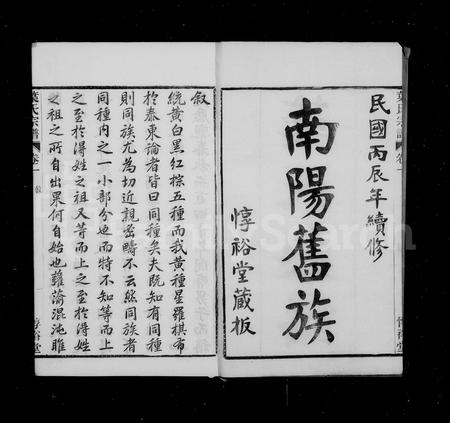 葉氏宗譜 卷一
民國丙辰年續修
南陽舊族
惇裕堂藏板
敘
統黃白黑紅棕五種而我黃種星羅棋布
於泰東論者皆曰同種矣夫既知有同種
則同族尤為切近親密疇不云然同族者
同種內之一小部分也而特不知等而上
之至於得姓之祖又等而上之至於得姓
之祖之所自出果何自始也雖淪混沌睢
葉氏宗譜 卷一 敘 惇裕堂